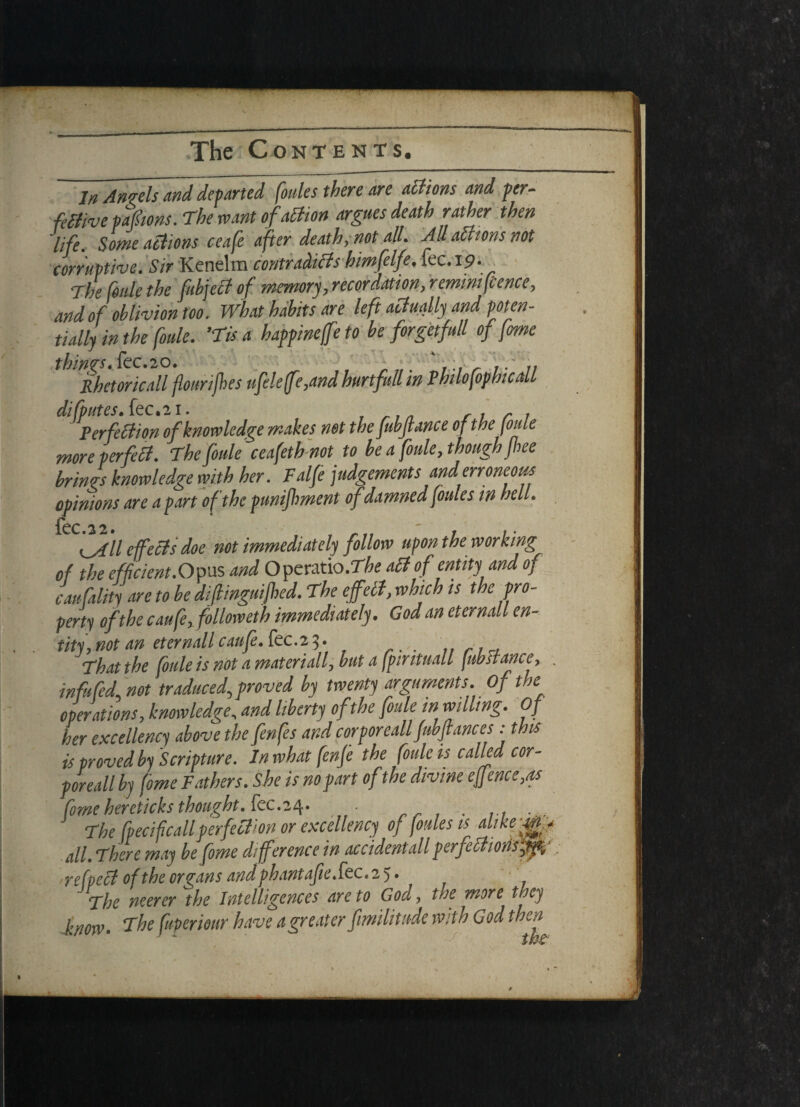 The CONTENTS.
In Angels and departed ſoules there are actions and per-
fective paſsions. The want of action argues death rather then
life. Some actions ceaſe after death, not all. All actions not
corruptive. Sir Kenelm contradicts himſelfe. ſec.19.
The ſoule the ſubject of memory, recordation, reminiſcence,
and of oblivion too. What habits are left actually and poten-
tially in the ſoule. 'Tis a happineſſe to be forgetfull of ſome
things. ſec.20.
Rhetoricall flouriſhes uſeleſſe, and hurtfull in Philoſophicall
diſputes. ſec.21.
Perfection of knowledge makes not the ſubſtance of the ſoule
more perfect. The ſoule ceaſeth not to be a ſoule, though ſhee
brings knowledge with her. Falſe judgements and erroneous
opinions are a part of the puniſhment of damned ſoules in hell.
ſec.22.
All effects doe not immediately follow upon the working
of the efficient. Opus and Operatio. The act of entity and of
cauſality are to be diſtinguiſhed. The effect, which is the pro-
perty of the cauſe, followeth immediately. God an eternall en-
tity, not an eternall cauſe. ſec.23.
That the ſoule is not a materiall, but a ſpirituall ſubstance,
infuſed, not traduced, proved by twenty arguments. Of the
operations, knowledge, and liberty of the ſoule in willing. Of
her excellency above the ſenſes and corporeall ſubſtances : this
is proved by Scripture. In what ſenſe the ſoule is called cor-
poreall by ſome Fathers. She is no part of the divine eſſence, as
ſome hereticks thought. ſec.24.
The ſpecificall perfection or excellency of ſoules is alike in
all. There may be ſome difference in accidentall perfections,
reſpect of the organs and phantaſie. ſec.25.
The neerer the Intelligences are to God, the more they
know. The ſuperiour have a greater ſimilitude with God then
the